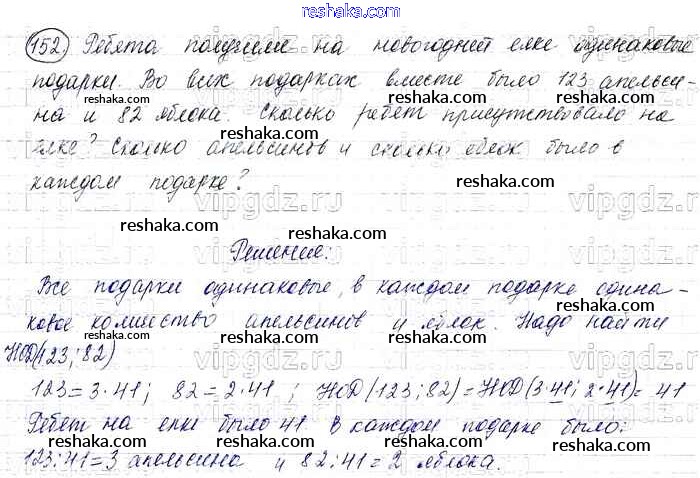 reshaka.com
152 Ребята получили на новогодней елке одинаковые
подарки. Во всех подарках вместе было 123 апельси-
на и 82 яблока. Сколько ребят присутствовало на
елке? Сколько апельсинов и сколько яблок было в
каждом подарке?
Решение:
Все подарки одинаковые, в каждом подарке одина-
ковое количество апельсинов и яблок. Надо найти
НОД(123;82)
123=3·41; 82=2·41; НОД(123;82)=НОД(3·41;2·41)=41
Ребят на елке было 41 В каждом подарке было:
123:41=3 апельсина и 82:41=2 яблока.
reshaka.com
reshaka.com
reshaka.com
reshaka.com
reshaka.com
reshaka.com
reshaka.com
reshaka.com
reshaka.com
reshaka.com
reshaka.com
vipgdz.ru
vipgdz.ru
vipgdz.ru